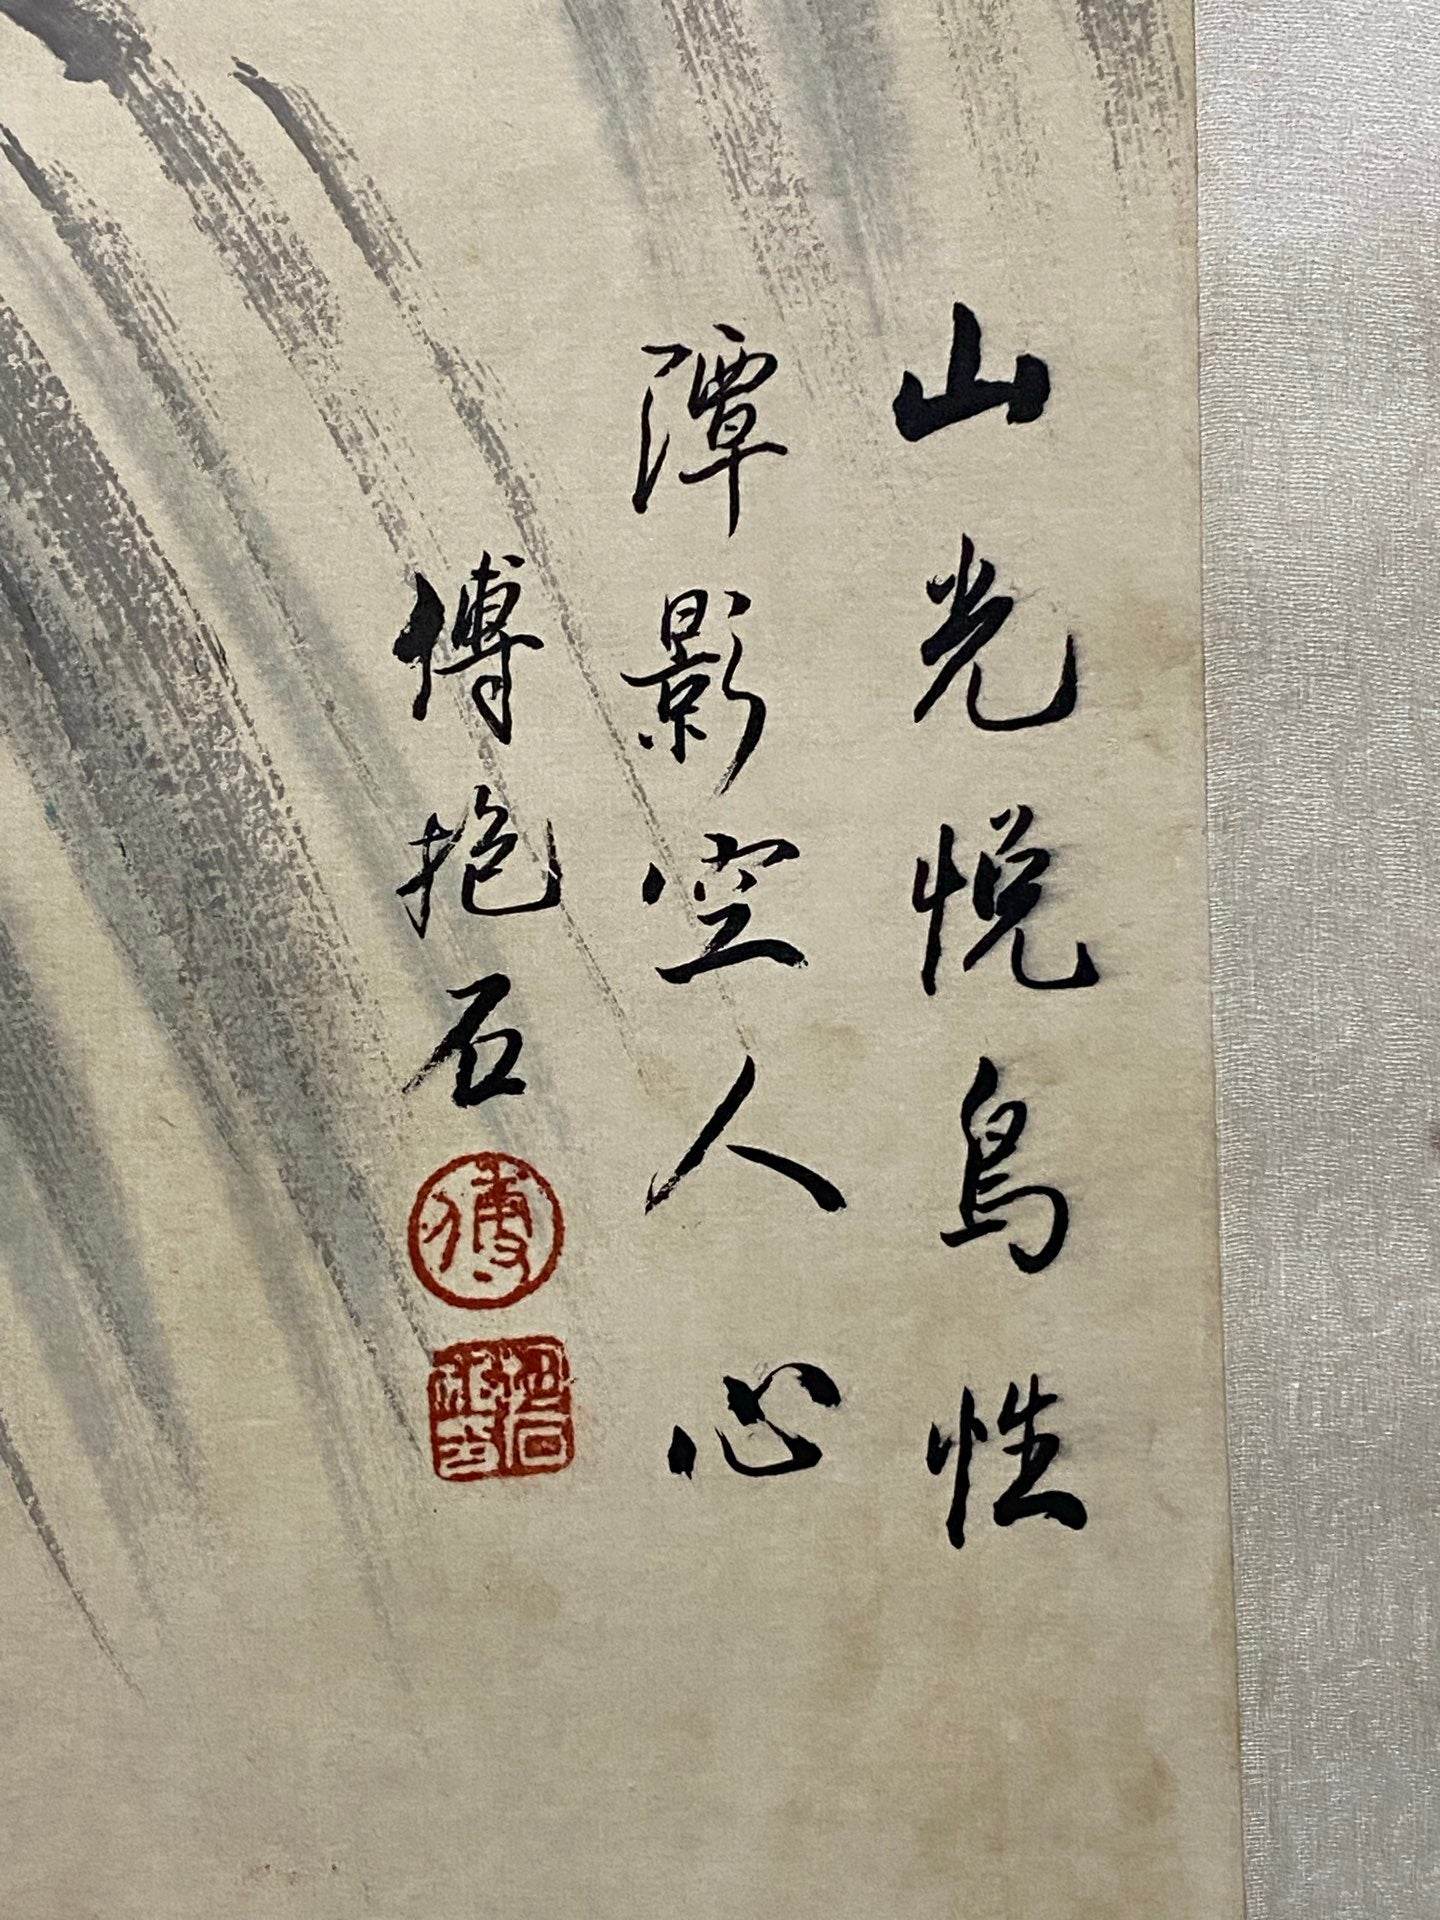 山光悦鳥性
潭影空人心
傅抱石
傅